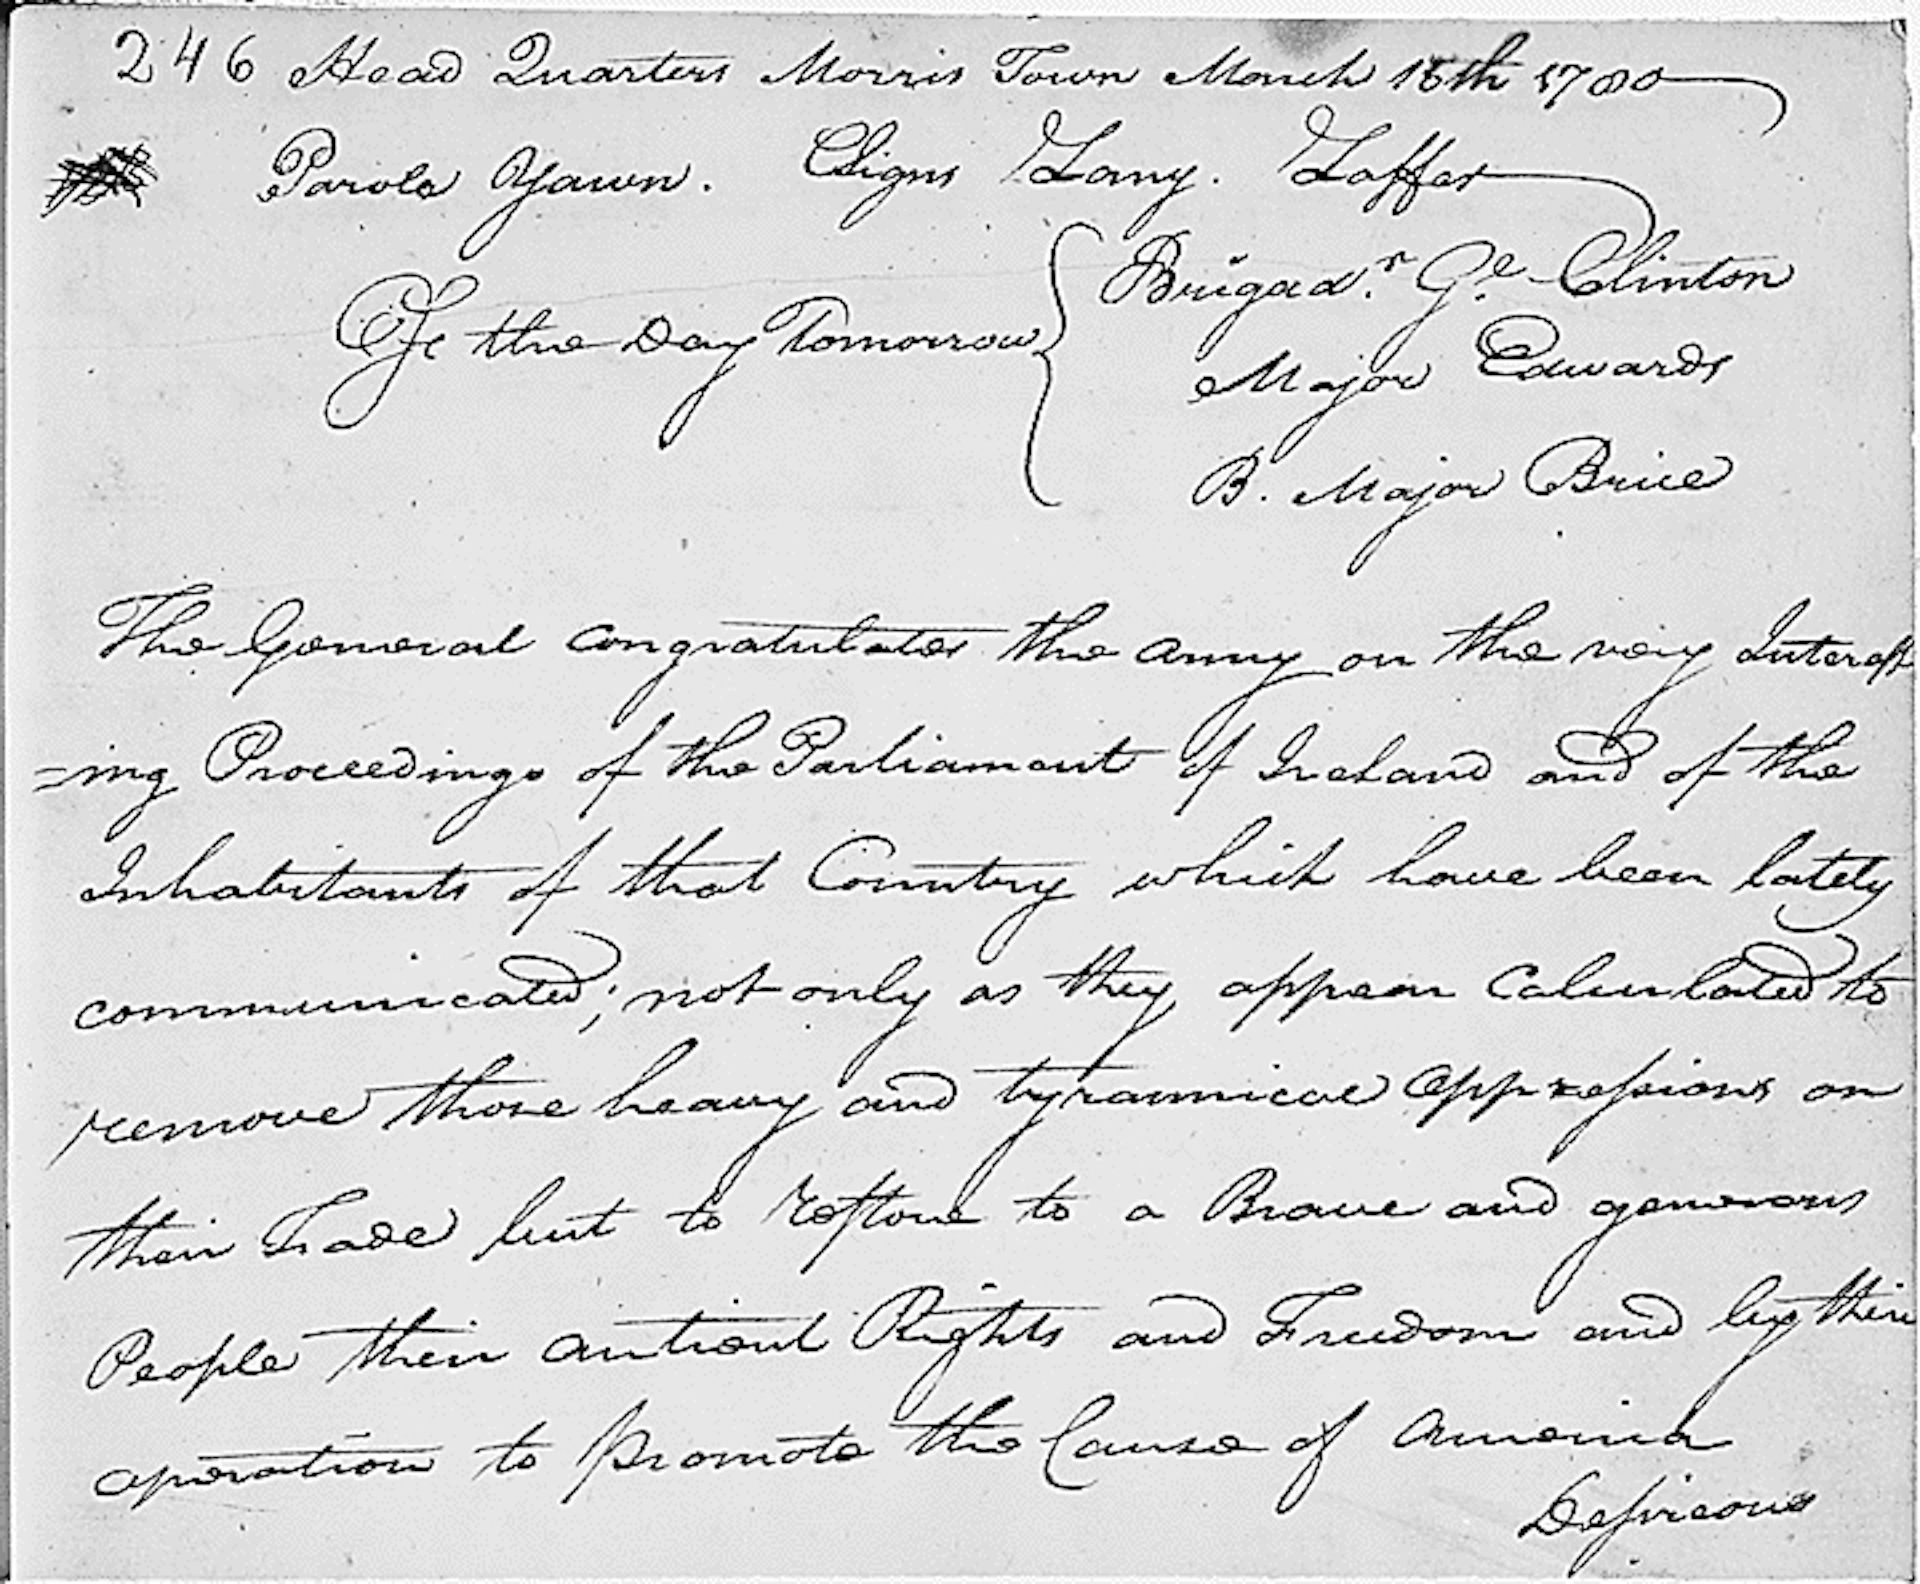 246 Head Quarters Morris Town March 16th 1780
Parole Yawn. CSigns Zany. Zaffer
Of the Day Tomorrow
Brigadr. Gl. Clinton
Major Edwards
B. Major Brice
The General congratulates the army on the very Interest
=ing Proceedings of the Parliament of Ireland and of the
Inhabitants of that Country which have been lately
communicated; not only as they appear Calculated to
remove those heavy and tyrannical Oppressions on
their Trade but to restore to a Brave and generous
People their antient Rights and Freedom and by their
operation to promote the Cause of America
Desireous